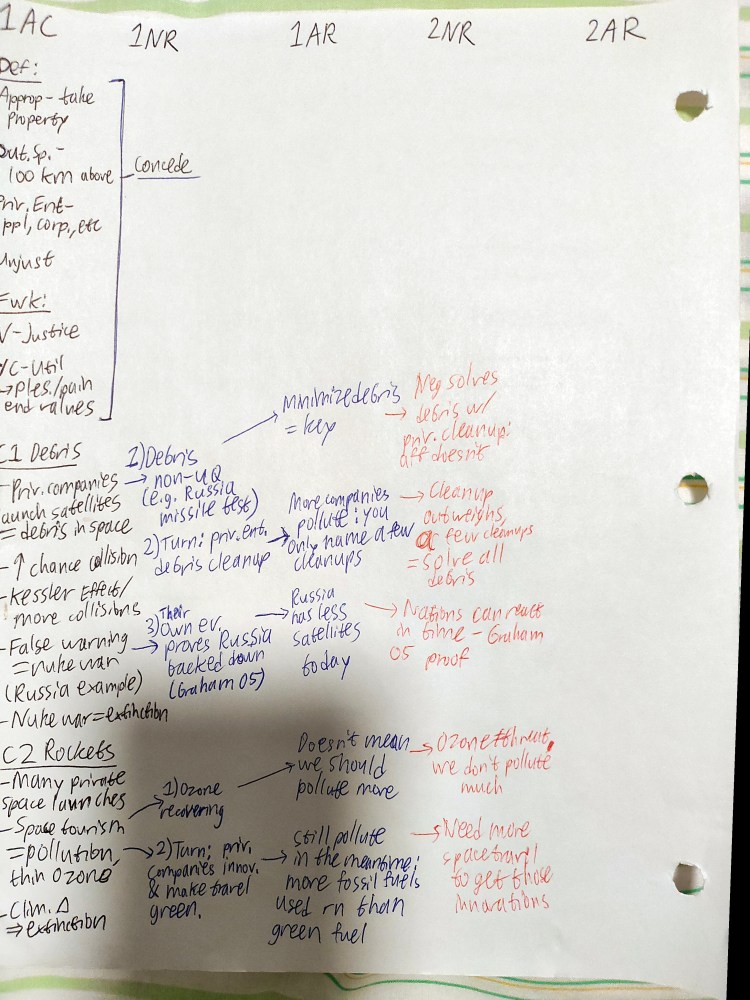 1AC
1NR
1AR
2NR
2AR
Def:
Approp - take
Property
Out.Sp. -
100 km above
Priv. Ent -
ppl, corp., etc
Unjust
Fwk:
V - Justice
VC - Util
→ Ples./pain
end values
Concede
C1 Debris
- Priv. companies
launch satellites
= debris in space
- ↑ chance collision
- Kessler Effect/
more collisions
- False warning
= nuke war
(Russia example)
- Nuke war = extinction
1) Debris
→ non-UQ
(e.g. Russia
missile test)
2) Turn: priv. ent.
debris cleanup
3) Their
own ev.
proves Russia
backed down
(Graham 05)
Minimize debris
= key
More companies
pollute; you
only name a few
cleanups
Russia
has less
satellites
today
Neg solves
debris w/
priv. cleanup;
aff doesn't
→ Cleanup
outweighs,
a few cleanups
= solve all
debris
→ Nations can react
in time - Graham
05 proof
C2 Rockets
- Many private
space launches
- Space tourism
= pollution,
thin ozone
- Clim. Δ
⇒ extinction
1) Ozone
recovering
→ 2) Turn: priv.
companies innov.
& make travel
green.
Doesn't mean
we should
pollute more
still pollute
in the meantime;
more fossil fuels
used rn than
green fuel
→ Ozone ≠ threat,
we don't pollute
much
→ Need more
space travel
to get those
innovations